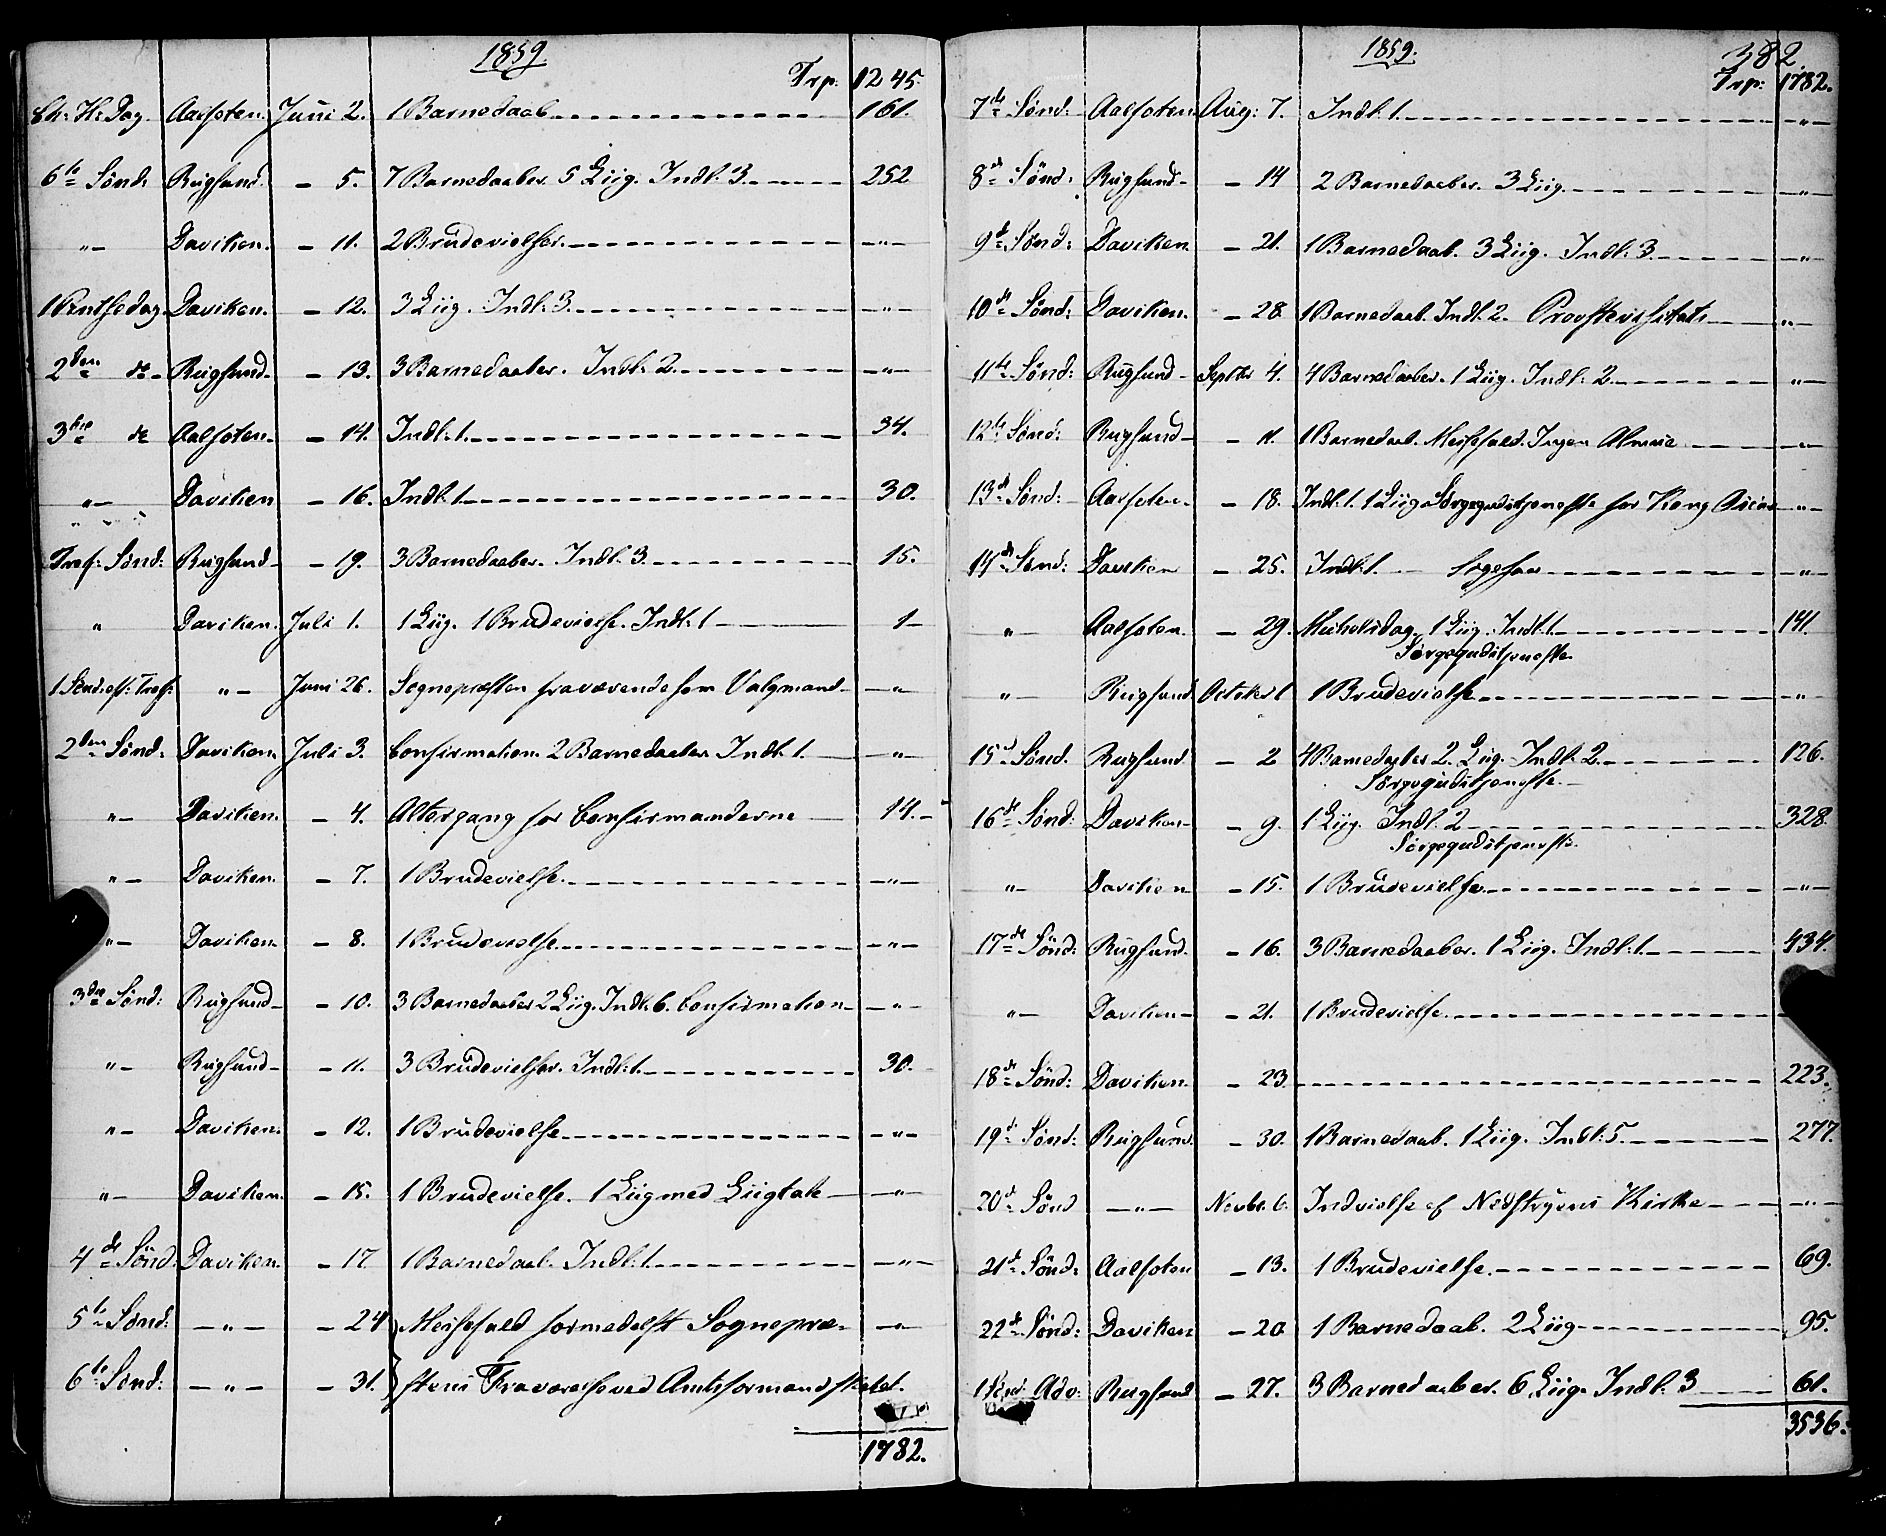 1859.
Trp: 1245.
Ch: H: Dag Aalfoten. Juni 2. 1 Barnedaab 161.
6te Sønd: Rugsund. - 5. 7 Barnedaaber. 5 Liig. Indl: 3. 252
"- Daviken. - 11. 2 Brudevielser. -"-
1 Pintsedag Daviken. - 12. 3 Liig. Indl: 3. -"-
2den do - Rugsund - 13. 3 Barnedaaber. Indl: 2. -"-
3die do Aalfoten. - 14. Indl: 1. 34.
"- Daviken - 16. Indl: 1. 30.
Tref: Sønd: Rugsund - 19. 3 Barnedaaber. Indl: 3. 15.
" Daviken. Juli 1. 1 Liig. 1 Brudevielse. Indl: 1 1-
1 Sønd. eft: Tref: "- Juni 26. Sognepræsten fraværende som Valgmand -"
2den Sønd: Daviken. Juli 3. Confirmation 2 Barnedaaber Indl: 1. -"-
"- Daviken. - 4. Altergang for Confirmanderne 14.-
"- Daviken. - 7. 1 Brudevielse. -"-
"- Daviken. - 8. 1 Brudevielse. -"-
3die Sønd: Rugsund - 10. 3 Barnedaaber 2 Liig. Indl: 6. Confirmation -"-
"- Rugsund - 11. 3 Brudevielser. Indl: 1. 30.
"- Daviken. - 12. 1 Brudevielse -"-
"- Daviken. - 15. 1 Brudevielse. 1 Liig med Liigtale -"-
4de Sønd: Daviken. - 17 1 Barnedaab. Indl: 1. -"-
5te Sønd: -"- - 24 Messefald formedelst Sognepræ- -"-
6te Sønd: -"- - 31. stens Fraværelse ved Amtsformandskabet.
1782.
1859.
382
Trp: 1782.
7de Sønd: Aalfoten Aug: 7. Indl: 1. -"-
8de Sønd: Rugsund - 14 2 Barnedaaber. 3 Liig. -"-
9de Sønd: Daviken - 21. 1 Barnedaab. 3 Liig. Indl: 3. -"-
10de Sønd: Daviken. - 28 1 Barnedaab. Indl: 2. Provstevisitats "-
11te Sønd: Rugsund - Septbr 4. 4 Barnedaaber. 1 Liig. Indl: 2. "-
12te Sønd: Rugsund - 11. 1 Barnedaab. Messefald. Ingen Almue -"-
13de Sønd: Aalfoten. - 18. Indl: 1. 1 Liig. Sørgegudstjeneste for Kong Oscar -"-
14de Sønd: Daviken - 25. Indl: 1. Ligesaa -"-
"- Aalfoten. - 29. Michelsdag. 1 Liig. Indl: 1 141.
Sørgegudstjeneste.
"- Rugsund Octobr 1 1 Brudevielse -"-
15de Sønd. Rugsund - 2 4 Barnedaaber 2. Liig. Indl: 2. 126.
Sørgegudstjeneste.
16de Sønd: Daviken - 9. 1 Liig. Indl: 2 328.
Sørgegudstjeneste.
"- Daviken - 15. 1 Brudevielse. -"-
17de Sønd: Rugsund. - 16. 3 Barnedaaber. 1 Liig. Indl: 1. 434.
"- Daviken - 21. 1 Brudevielse.
18de Sønd: Daviken. - 23. 223.
19de Sønd: Rugsund. - 30. 1 Barnedaab. 1 Liig. Indl: 5. 277.
20de Sønd -"- Novbr. 6. Indvielse af Nedstryens Kirke -"-
21de Sønd: Aalfoten - 13. 1 Brudevielse. 69.
22de Sønd: Daviken - 20 1 Barnedaab. 2 Liig 95.
1 Sønd Adv: Rugsund - 27. 3 Barnedaaber. 6 Liig. Indl: 3 61.
3536.